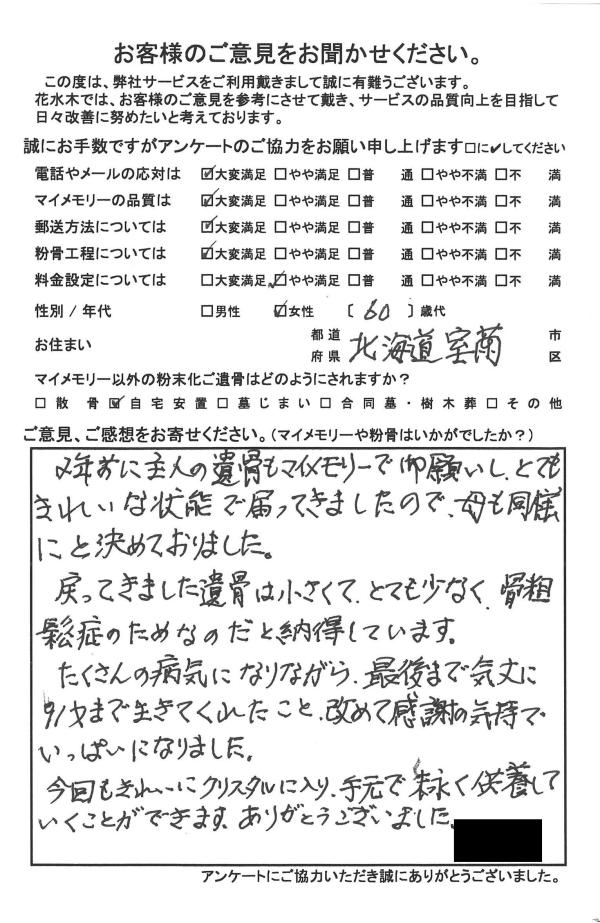 お客様のご意見をお聞かせください。
この度は、弊社サービスをご利用戴きまして誠に有難うございます。
花水木では、お客様のご意見を参考にさせて戴き、サービスの品質向上を目指して
日々改善に努めたいと考えております。
誠にお手数ですがアンケートのご協力をお願い申し上げます□に✔してください
電話やメールの応対は ☑大変満足 □やや満足 □普 通 □やや不満 □不 満
マイメモリーの品質は ☑大変満足 □やや満足 □普 通 □やや不満 □不 満
郵送方法については ☑大変満足 □やや満足 □普 通 □やや不満 □不 満
粉骨工程については ☑大変満足 □やや満足 □普 通 □やや不満 □不 満
料金設定については □大変満足 ☑やや満足 □普 通 □やや不満 □不 満
性別 / 年代 □男性 ☑女性 〔 60 〕歳代
お住まい 都道府県 北海道室蘭 市区
マイメモリー以外の粉末化ご遺骨はどのようにされますか?
□散 骨 ☑自宅安置 □墓じまい □合同墓・樹木葬 □その他
ご意見、ご感想をお寄せください。(マイメモリーや粉骨はいかがでしたか?)
2年前に主人の遺骨もマイメモリーで御願いし、とても
きれいな状態で届ってきましたので、母も同様
にと決めておりました。
戻ってきました遺骨は小さくて、とても少なく、骨粗
鬆症のためなのだと納得しています。
たくさんの病気になりながら、最後まで気丈に
91才まで生きてくれたこと、改めて感謝の気持で
いっぱいになりました。
今回もきれいにクリスタルに入り、手元で末永く供養して
いくことができます。ありがとうございました。
アンケートにご協力いただき誠にありがとうございました。